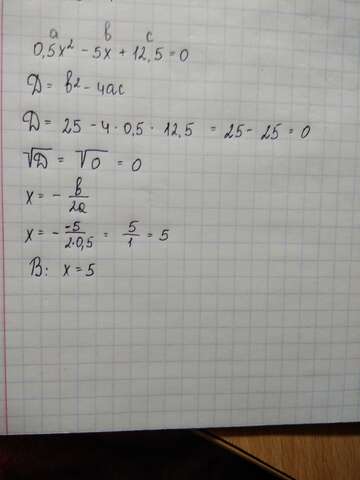 a b c
0,5x² - 5x + 12,5 = 0
Д = b² - 4ac
Д = 25 - 4 · 0,5 · 12,5 = 25 - 25 = 0
√Д = √0 = 0
x = - b/2a
x = - -5/2·0,5 = 5/1 = 5
В: x = 5